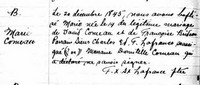 B.
Marie
Comeau
Le 20 décembre 1845, nous avons baptisé
Marie née le 19 du légitime mariage
de Louis Comeau et de Françoise
Parrain Sieur Charles Ed. F. Lafrance
Mareine Domitille Comeau qui
a déclaré ne savoir signer.
F. X. St Lafrance ptre